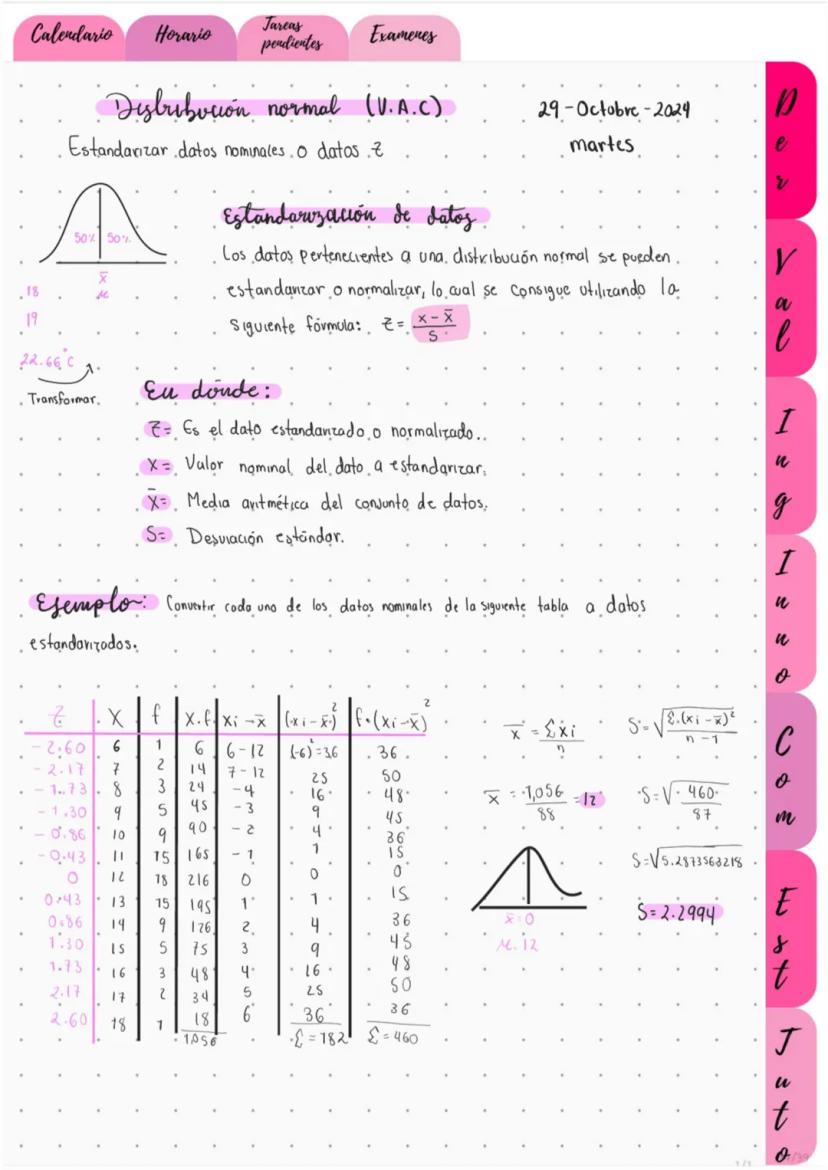 Calendario Horario Tareas pendientes Examenes
Distribución normal (V.A.C)
29-Octubre-2024
martes
Estandarizar datos nominales o datos z
50% 50%
x̄
μ
18
19
22.66°C
Transformar
Estandarización de datos
Los datos pertenecientes a una distribución normal se pueden
estandarizar o normalizar, lo cual se consigue utilizando la
siguiente fórmula: z = (x - x̄) / S
En dónde:
z= Es el dato estandarizado o normalizado.
X= Valor nominal del dato a estandarizar.
x̄= Media aritmética del conjunto de datos.
S= Desviación estándar.
Ejemplo: Convertir cada uno de los datos nominales de la siguiente tabla a datos
estandarizados.
z X f X.f xi - x̄ (xi - x̄)² f•(xi - x̄)²
-2.60 6 1 6 6-12 (-6)²=36 36
-2.17 7 2 14 7-12 25 50
-1.73 8 3 24 -4 16 48
-1.30 9 5 45 -3 9 45
-0.86 10 9 90 -2 4 36
-0.43 11 15 165 -1 1 15
0 12 18 216 0 0 0
0.43 13 15 195 1 1 15
0.86 14 9 126 2 4 36
1.30 15 5 75 3 9 45
1.73 16 3 48 4 16 48
2.17 17 2 34 5 25 50
2.60 18 1 18 6 36 36
1056 Σ=182 Σ=460
x̄ = Σxi / n
x̄ = 1,056 / 88 = 12
x̄=0
μ. 12
S=√(Σ.(xi - x̄)² / n-1)
S=√(460 / 87)
S=√5.2873563218
S=2.2994
Der
Val
Ing
Inno
Com
Est
Tuto